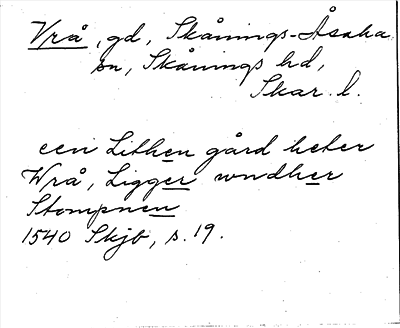 Vrå, gd, Skånings-Åsaka
sn, Skånings hd,
Skar. l.
een Lithen gård heter
Wrå, Ligger wndher
Stompnen
1540 Skjb, s. 19.